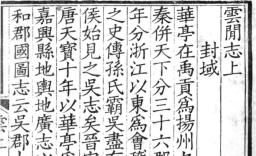 雲閒志上
封域
華亭在禹貢爲揚州
秦併天下分三十六郡
年分浙江以東爲會稽
之史傳孫氏霸吳盡有
侯始見之吳志矣晉
唐天寶十年以華亭
嘉興縣地輿地廣志
和郡國圖志云吳郡